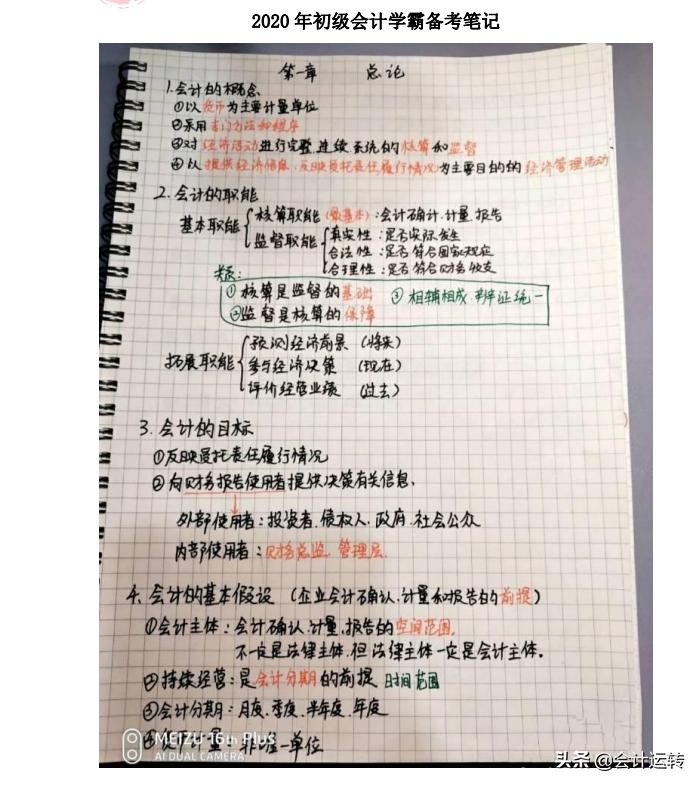 2020年初级会计学霸备考笔记
第一章 总论
1.会计的概念
①以货币为主要计量单位
②采用专门方法和程序
③对经济活动进行完整、连续、系统的核算和监督
④以提供经济信息、反映受托责任履行情况为主要目的的经济管理活动
2.会计的职能
基本职能
核算职能(最基本):会计确计.计量.报告
监督职能
真实性:是否实际发生
合法性:是否符合国家规定
合理性:是否符合财务收支
关系:
①核算是监督的基础 ③相辅相成.辩证统一
②监督是核算的保障
拓展职能
预测经济前景(将来)
参与经济决策(现在)
评价经营业绩(过去)
3.会计的目标
①反映受托责任履行情况
②向财务报告使用者提供决策有关信息、
外部使用者:投资者.债权人.政府.社会公众
内部使用者:财务总监、管理层.
4.会计的基本假设(企业会计确认.计量和报告的前提)
①会计主体:会计确认.计量.报告的空间范围.
不一定是法律主体.但法律主体一定是会计主体。
②持续经营:是会计分期的前提 时间范围
③会计分期:月度.季度.半年度.年度
④ 计量 唯一单位
MEIZU 16th Plus
AI DUAL CAMERA
头条 @会计运转